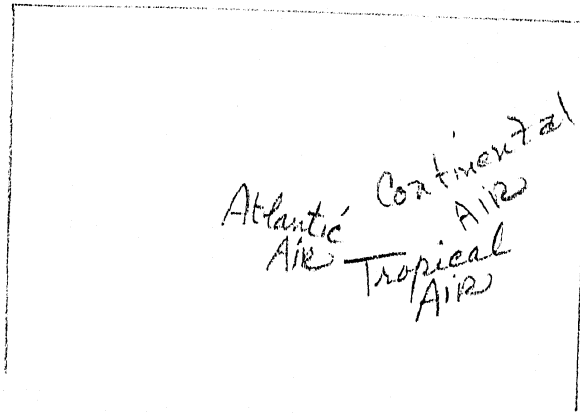 Atlantic
Air
Continental
Air
Tropical
Air